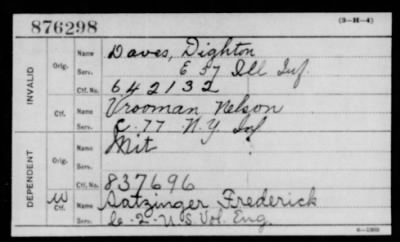 876298 (3-H-4)
INVALID
Orig. Name Daves, Dighton
Serv. E 57 Ill Inf.
Ctf. No. 642132
Ctf. Name Vrooman Nelson
Serv. C. 77 N.Y Inf
DEPENDENT
Orig. Name Mit
Serv.
Ctf. No. 837696
W Ctf. Name Satzinger Frederick
Serv. Co-2-U S Vol. Eng.